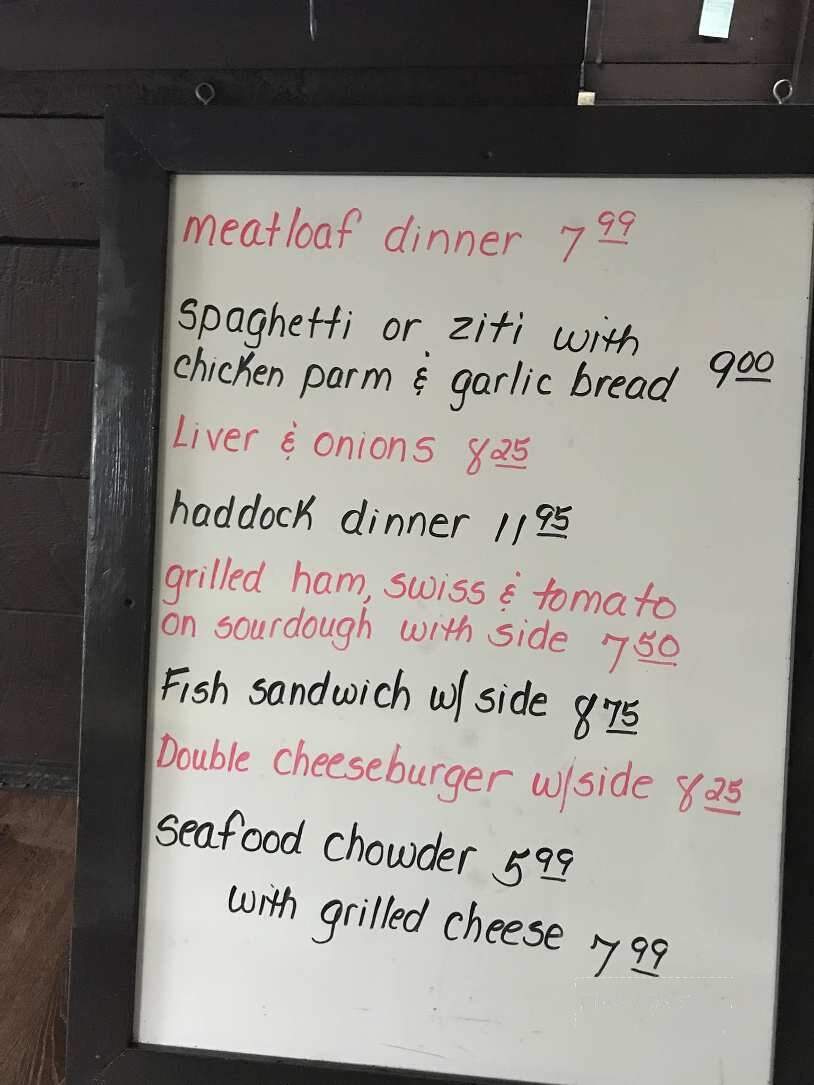 meatloaf dinner 7 99
spaghetti or ziti with
chicken parm & garlic bread 9 00
Liver & onions 8 25
haddock dinner 11 95
grilled ham, swiss & tomato
on sourdough with side 7 50
Fish sandwich w/ side 8 75
Double cheeseburger w/side 8 25
seafood chowder 5 99
with grilled cheese 7 99